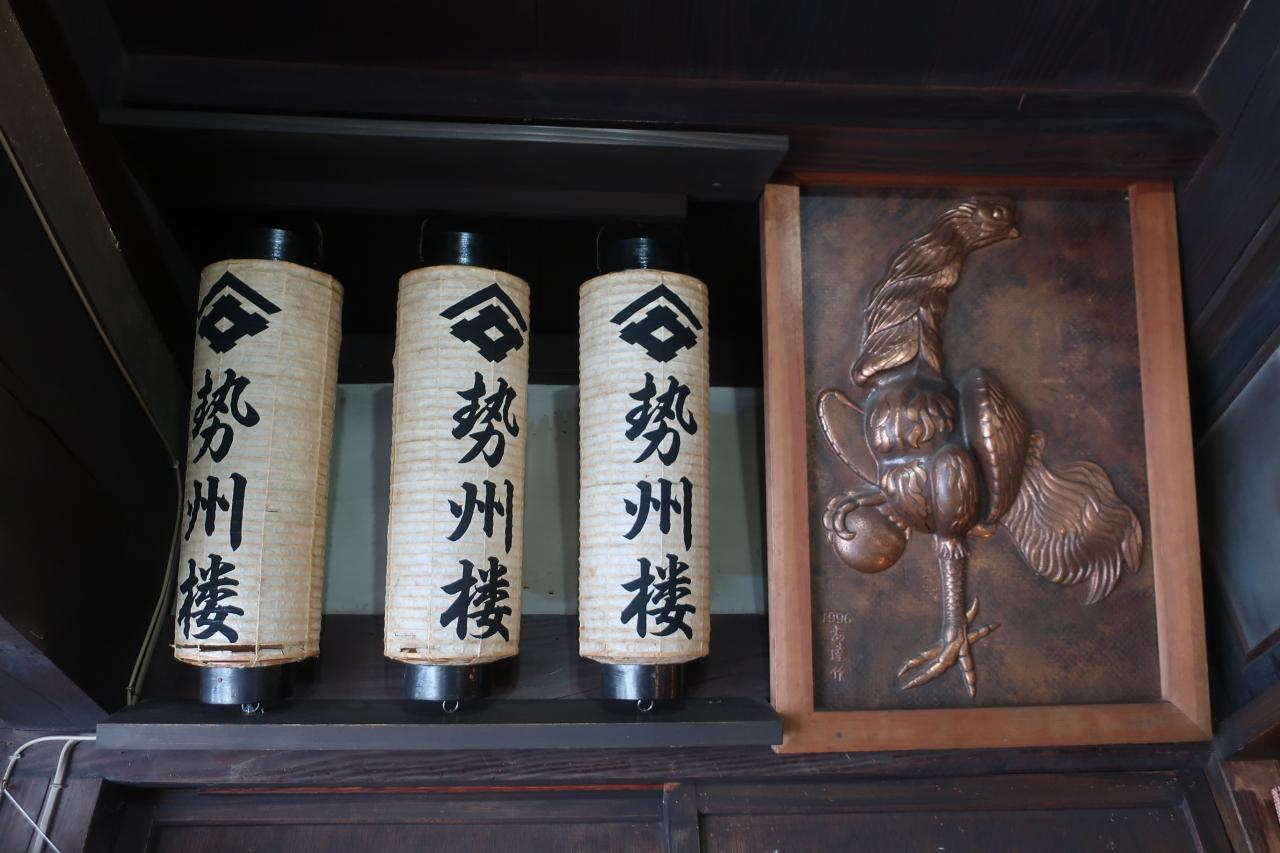 勢州楼
勢州楼
勢州楼
1996